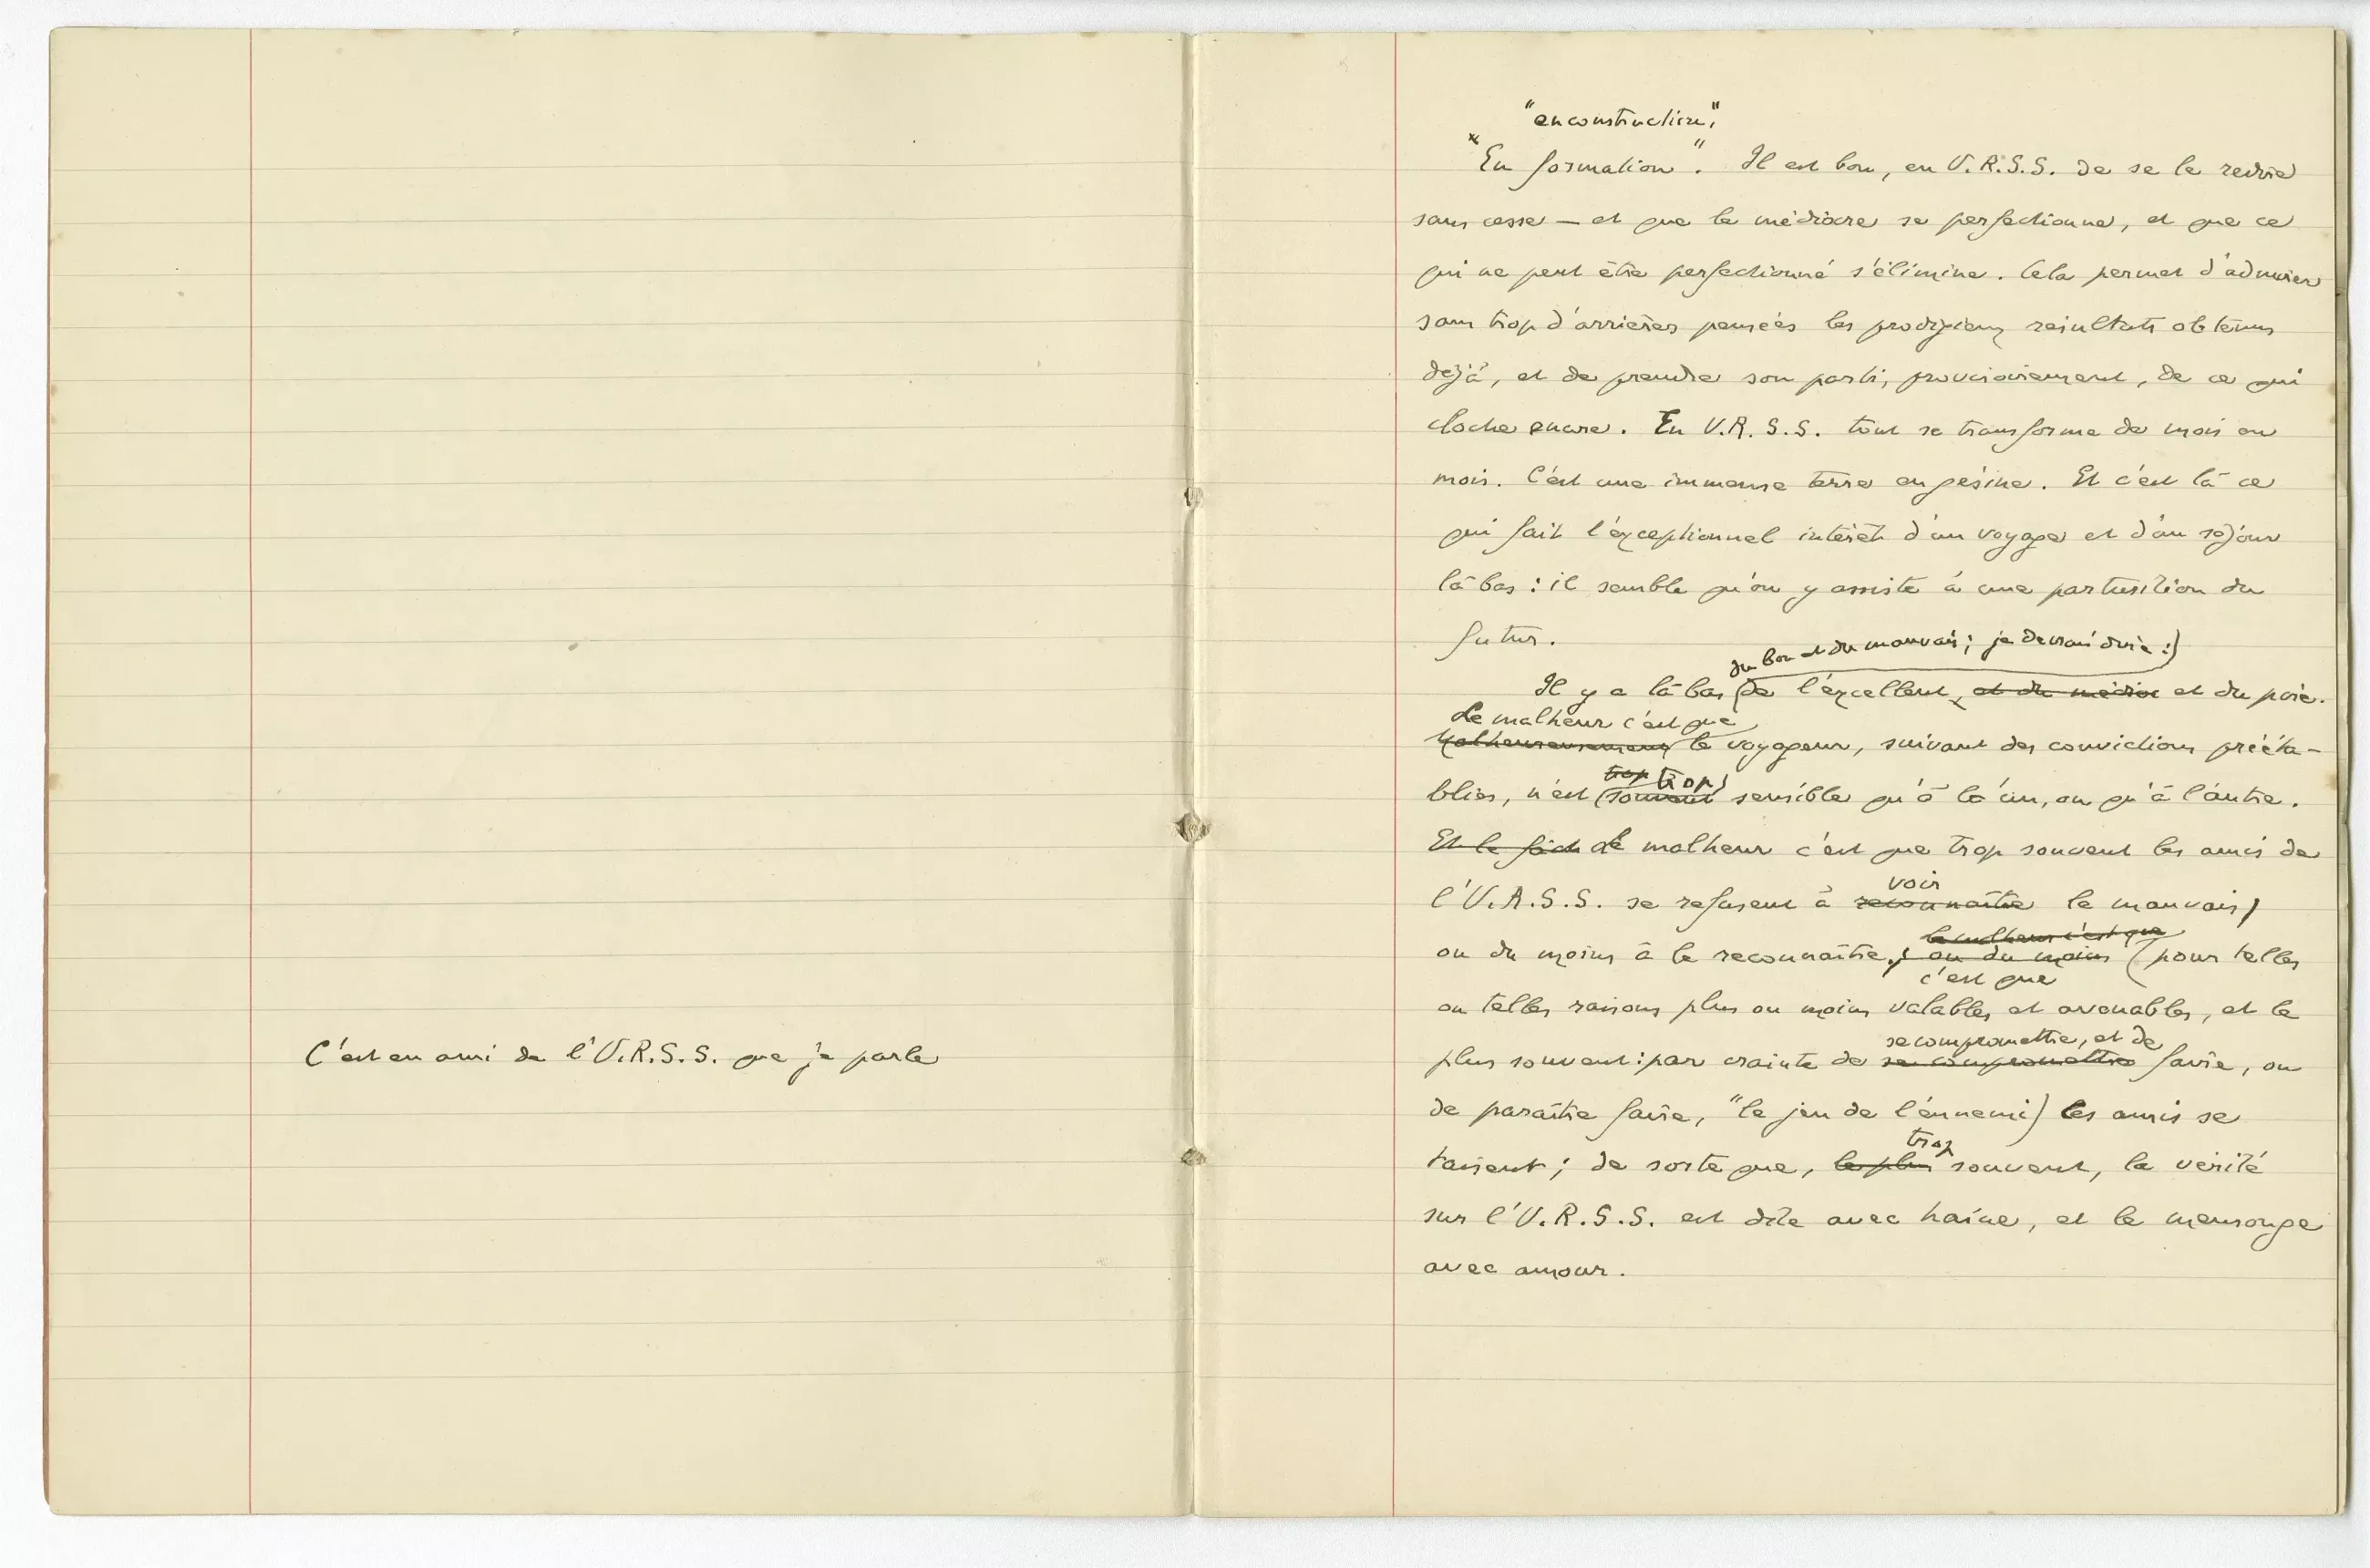 C'est en ami de l'U.R.S.S. que je parle
"en construction",
"En formation". Il est bon, en U.R.S.S. de se le redire
sans cesse — et que le médiocre se perfectionne, et que ce
qui ne peut être perfectionné s'élimine. Cela permet d'admirer
sans trop d'arrières pensées les prodigieux résultats obtenus
déjà, et de prendre son parti, provisoirement, de ce qui
cloche encore. En U.R.S.S. tout se transforme de mois en
mois. C'est une immense terre en gésine. Et c'est là ce
qui fait l'exceptionnel intérêt d'un voyage et d'un séjour
là bas : il semble qu'on y assiste à une parturition du
futur.
du bon et du mauvais ; je devrais dire :
Il y a là bas de l'excellent, et du médio et du pire.
Le malheur c'est que
Malheureusement le voyageur, suivant des convictions prééta-
trop trop
blies, n'est souvent sensible qu'à l'un, ou qu'à l'autre.
Et le fâch Le malheur c'est que trop souvent les amis de
voir
l'U.R.S.S. se refusent à reconnaître le mauvais,
le malheur c'est que
ou du moins à le reconnaître ; ou du moins (pour telles
c'est que
ou telles raisons plus ou moins valables et avouables, et le
se compromettre, et de
plus souvent : par crainte de se compromettre faire, ou
de paraître faire, "le jeu de l'ennemi) les amis se
taisent ; de sorte que, le plus souvent, la vérité
trop
sur l'U.R.S.S. est dite avec haine, et le mensonge
avec amour.